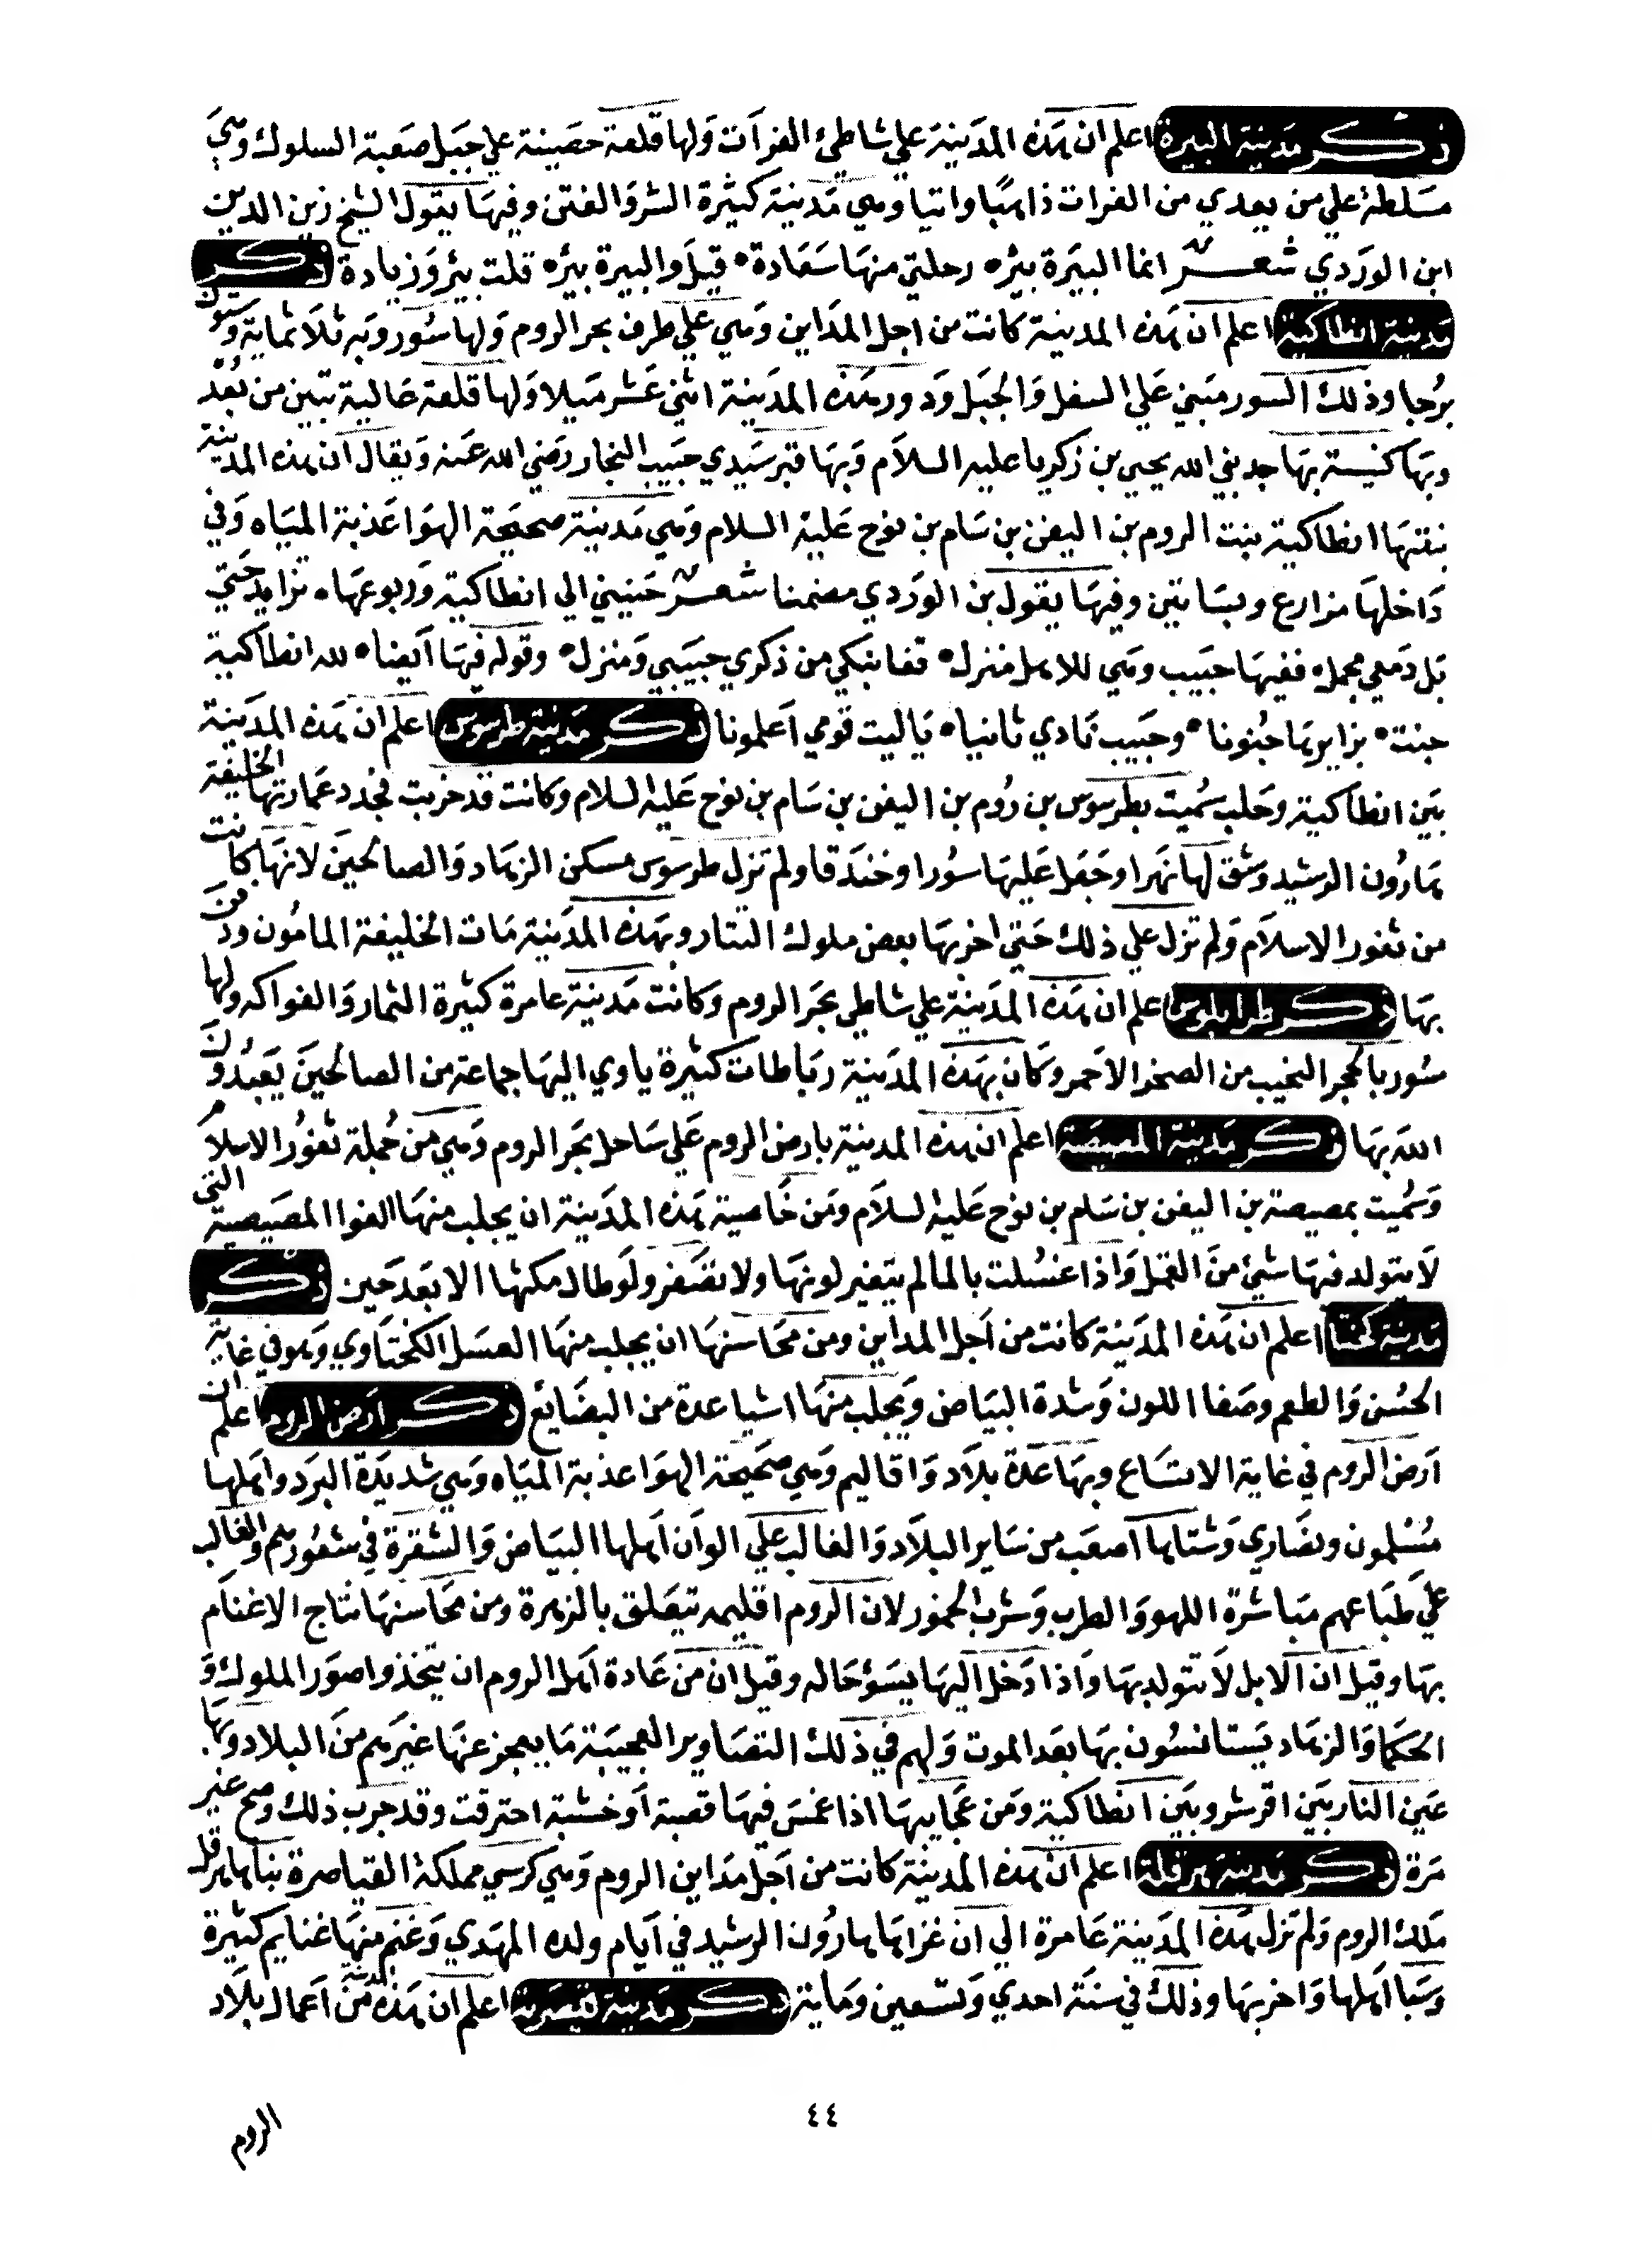 ذكر مدينة البيرة اعلم ان هذه المدينة علي شاطئ الفرات ولها قلعة حصينة علي جبل صعبة السلوك وهي
مسلطة علي من يعدي من الفرات ذاهبا واتيا وهي مدينة كثيرة الشر والفتن وفيها يقول الشيخ زين الدين
ابن الوردي شعر انما البيرة بئره رحلتي منها سعادة قيل والبيرة بئره قلت بئر وزيادة ذكر
مدينة انطاكية اعلم ان هذه المدينة كانت من اجل المداين وهي علي طرف بحر الروم ولها سور وبه ثلاثماية وستون
برجا وذلك السور مبني علي السفل والجبل ودور هذه المدينة اثني عشر ميلا ولها قلعة عالية تبين من بعد
وبها كنيسة بها جد نبي الله يحيي بن زكريا عليه السلام وبها قبر سيدي حبيب النجار رضي الله عنه ويقال ان هذه المدينة
بنتها انطاكية بنت الروم بن اليفن بن سام بن نوح عليه السلام وهي مدينة صحيحة الهوا عذبة المياه وفي
داخلها مزارع وبساتين وفيها يقول بن الوردي مضمنا شعر حنيني الي انطاكية وربوعها تزايد حتي
بل دمعي محمل ففيها حبيب وهي للاهل منزل قفا نبكي من ذكري حبيبي ومنزل وقوله فيها ايضا لله انطاكية
جنت بزايريها جنونا وحبيب نادي ثانيا ياليت قومي اعلمونا ذكر مدينة طرسوس اعلم ان هذه المدينة
بين انطاكية وحلب سميت بطرسوس بن روم بن اليفن بن سام بن نوح عليه السلام وكانت قد خربت فجدد عمارتها الخليفة
هارون الرشيد وشق لها نهرا وجعل عليها سورا وخندقا ولم تزل طرسوس مسكن الزهاد والصالحين لانها كانت
من ثغور الاسلام ولم تزل علي ذلك حتي اخربها بعض ملوك التتار وبهذه المدينة مات الخليفة المامون ودفن
بها ذكر طرابلس اعلم ان هذه المدينة علي شاطي بحر الروم وكانت مدينة عامرة كثيرة الثمار والفواكه ولها
سور بالحجر النحيب من الصخر الاحمر وكان بهذه المدينة رباطات كثيرة ياوي اليها جماعة من الصالحين يعبدون
الله بها ذكر مدينة المصيصة اعلم ان هذه المدينة بارض الروم علي ساحل بحر الروم وهي من جملة ثغور الاسلام
وسميت بمصيصة بن اليفن بن سام بن نوح عليه السلام ومن خاصية هذه المدينة ان يجلب منها الفوا المصيصية التي
لا يتولد فيها شيئ من القمل واذا غسلت بالما لم يتغير لونها ولا تضفر ولو طال مكثها الا بعد حين ذكر
مدينة كختا اعلم ان هذه المدينة كانت من اجل المداين ومن محاسنها ان يجلب منها العسل الكختاوي وهو في غاية
الحسن والطعم وصفا اللون وشدة البياض ويجلب منها اشيا عدة من البضايع ذكر ارض الروم اعلم ان
ارض الروم في غاية الاتساع وبها عدة بلاد واقاليم وهي صحيحة الهوا عذبة المياه وهي شديدة البرد واهلها
مسلمون ونصاري وشتاها اصعب من ساير البلاد والغالب علي الوان اهلها البياض والشقرة في شعورهم والغالب
علي طباعهم مباشرة اللهو والطرب وشرب الخمور لان الروم اقليمه تيعلق بالزهرة ومن محاسنها نتاج الاغنام
بها وقيل ان الابل لا تتولد بها واذا دخل اليها يسؤ حاله وقيل ان من عادة اهل الروم ان يتخذوا صور الملوك و
الحكما والزهاد يستانسون بها بعد الموت ولهم في ذلك التصاوير العجيبة ما يعجز عنها غيرهم من البلاد وبها
عين النار بين اقرشرو بين انطاكية ومن عجايبها اذا غمس فيها قصبة او خشبة احترقت وقد جرب ذلك وصح غير
مرة ذكر مدينة هرقلة اعلم ان هذه المدينة كانت من اجل مداين الروم وهي كرسي مملكة القياصرة بناها هرقل
ملك الروم ولم تزل هذه المدينة عامرة الي ان غزاها هارون الرشيد في ايام ولده المهدي وغنم منها غنايم كثيرة
وسبا اهلها واخربها وذلك في سنة احدي وتسعين وماية ذكر مدينة قيسرية اعلم ان هذه المدينة من اعمال بلاد
٤٤
الروم